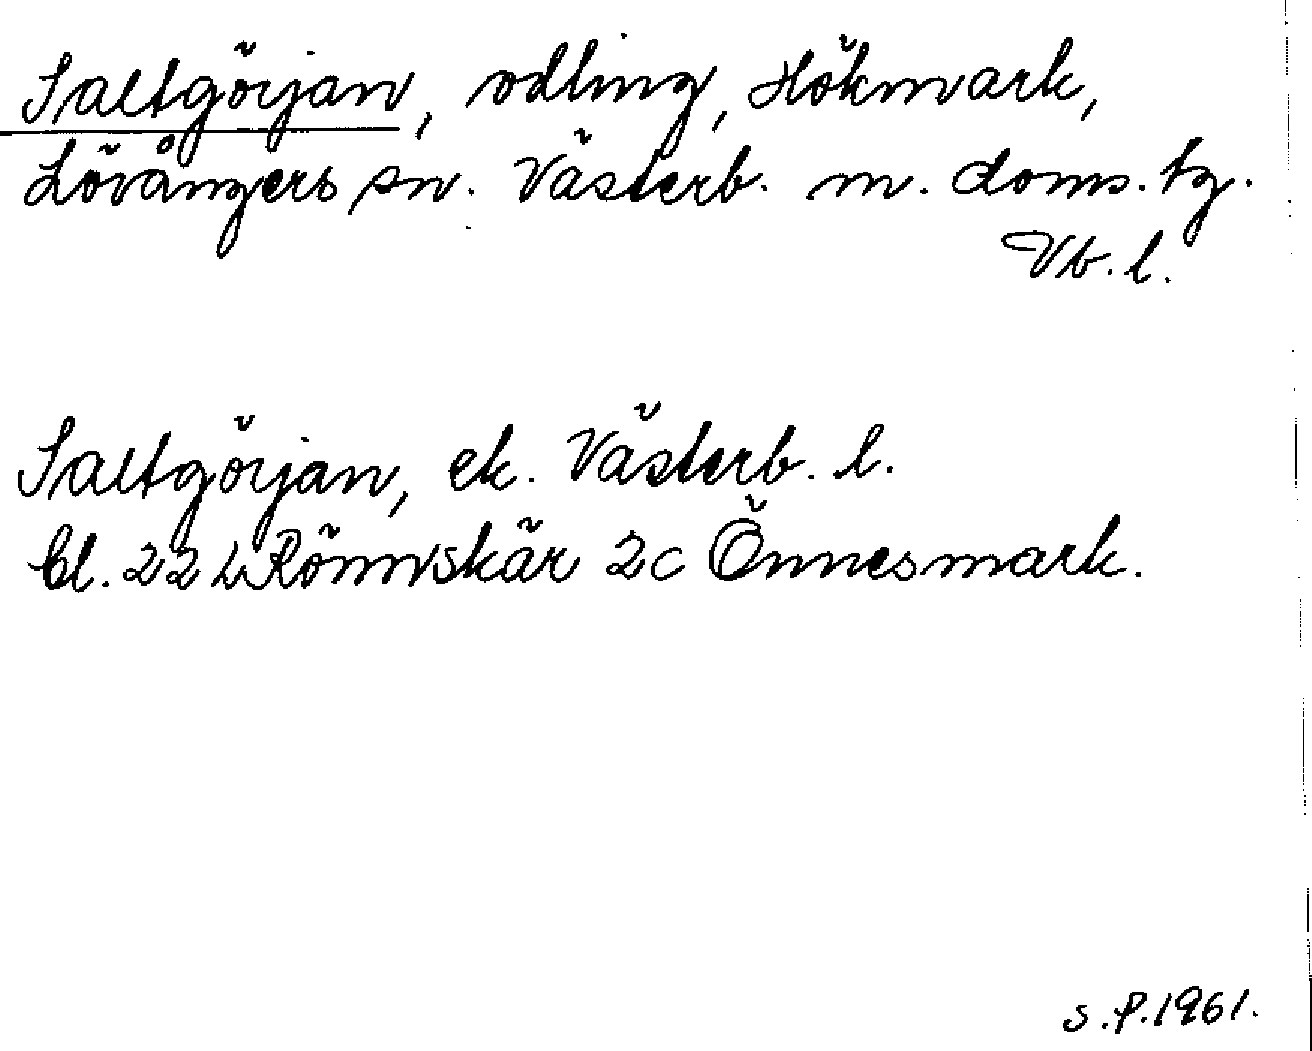 Saltgörjan, odling, Hökmark,
Lövångers sn. Västerb. m. doms. tg.
Vb. l.
Saltgörjan, ek. Västerb. l.
bl. 22 L Rönnskär 2c Önnesmark.
S.P. 1961.